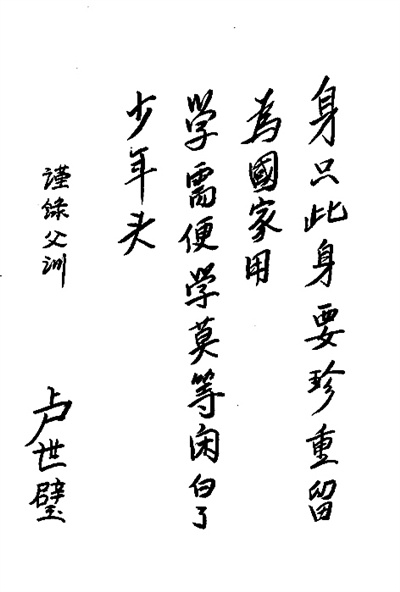 身只此身要珍重留
為國家用
学需便学莫等闲白了
少年头
謹錄父训
卢世璧